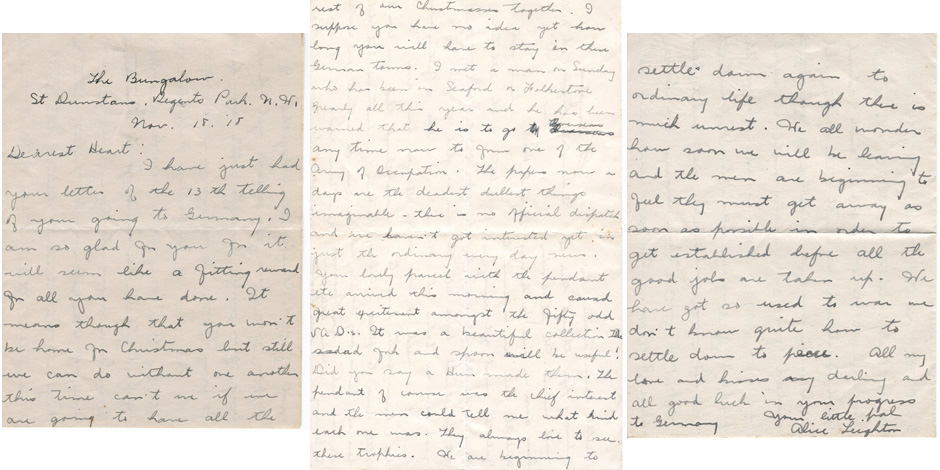 The Bungalow.
St Dunstans, Regents Park. N.W.
Nov. 18. '18
Dearest Heart:
I have just had
your letter of the 13th telling
of your going to Germany. I
am so glad for you for it
will seem like a fitting reward
for all you have done. It
means though that you won't
be home for Christmas but still
we can do without one another
this time can't we if we
are going to have all the
rest of our Christmasses together. I
suppose you have no idea yet how
long you will have to stay in these
German towns. I met a man on Sunday
who has been in Seaford or Folkestone
nearly all this year and he has been
warned that he is to go to overseas
any time now to join one of the
Army of Occupation. The papers now a
days are the deadest dullest things
imaginable. there is no official dispatch
and we haven't got interested yet in
just the ordinary every day news.
Your lovely parcel with the pendant
etc arrived this morning and caused
great excitement amongst the fifty odd
V.A.D.s. It was a beautiful collection the
salad fork and spoon will be useful!
Did you say a Hun made them. The
pendant of course was the chief interest
and the men could tell me what kind
each one was. They always love to see
these trophies. We are beginning to
settle down again to
ordinary life though there is
much unrest. We all wonder
how soon we will be leaving
and the men are beginning to
feel they must get away as
soon as possible in order to
get established before all the
good jobs are taken up. We
have got so used to war we
don't know quite how to
settle down to peace. All my
love and kisses my darling and
all good luck in your progress
to Germany Your little girl
Alice Leighton